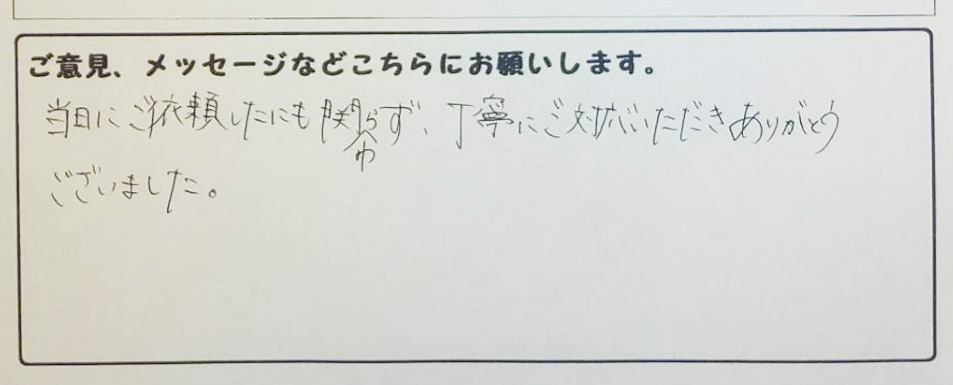 ご意見、メッセージなどこちらにお願いします。
当日にご依頼したにも関わらず、丁寧にご対応いただきありがとう
ございました。